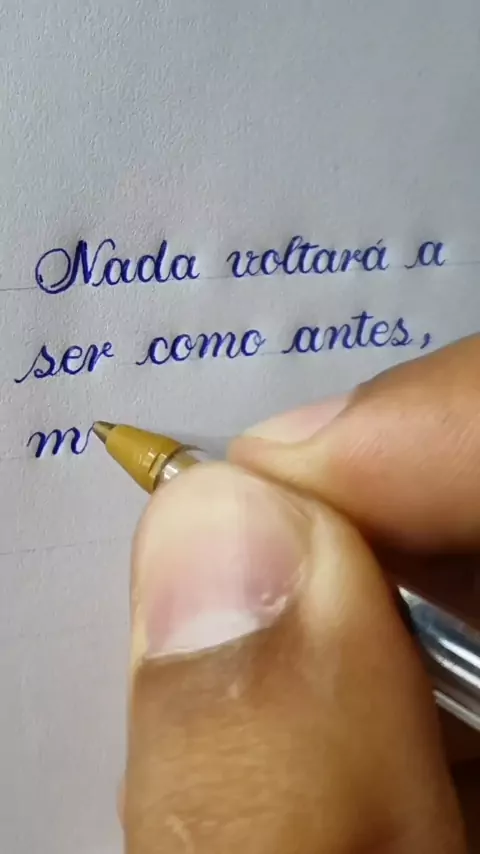 Nada voltará a
ser como antes,
m